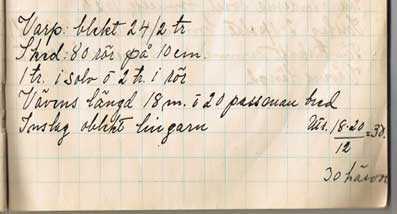 Varp: blekt 24/2 tr
Sked: 80 rör på 10 cm.
1 tr. i solv o 2 tr. i rör
Vävens längd 18 m. o 20 passman bred
Inslag oblekt lingarn
Uts. 18·20
12 = 30.
30 härvor